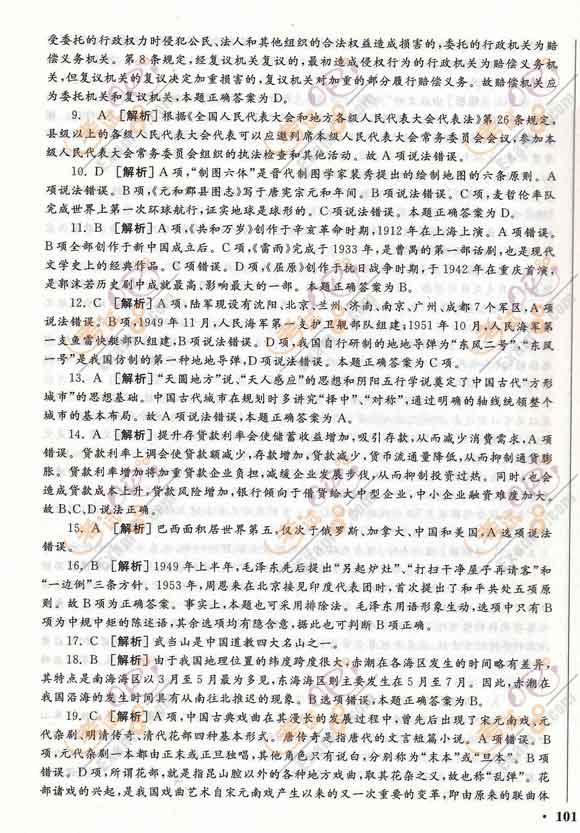 受委托的行政权力时侵犯公民、法人和其他组织的合法权益造成损害的,委托的行政机关为赔
偿义务机关。第8条规定,经复议机关复议的,最初造成侵权行为的行政机关为赔偿义务机
关,但复议机关的复议决定加重损害的,复议机关对加重的部分履行赔偿义务。故赔偿机关应
为委托机关和复议机关,本题正确答案为D。
9. A [解析]根据《全国人民代表大会和地方各级人民代表大会代表法》第26条规定,
县级以上的各级人民代表大会代表可以应邀列席本级人民代表大会常务委员会会议,参加本
级人民代表大会常务委员会组织的执法检查和其他活动。故A项说法错误。
10. D [解析]A项,“制图六体”是晋代制图学家裴秀提出的绘制地图的六条原则。A
项说法错误。B项,《元和郡县图志》写于唐宪宗元和年间。B项说法错误。C项,麦哲伦率队
完成世界上第一次环球航行,证实地球是球形的。C项说法错误。本题正确答案为D。
11. B [解析]A项,《共和万岁》创作于辛亥革命时期,1912年在上海上演。A项错误。
B项全部创作于新中国成立后。C项,《雷雨》完成于1933年,是曹禺的第一部话剧,也是现代
文学史上的经典作品。C项错误。D项,《屈原》创作于抗日战争时期,于1942年在重庆首演,
是郭沫若历史剧中成就最高、影响最大的一部。本题正确答案为B。
12. C [解析]A项,陆军现设有沈阳、北京、兰州、济南、南京、广州、成都7个军区,A项
说法错误。B项,1949年11月,人民海军第一支护卫舰部队组建;1951年10月,人民海军第
一支鱼雷快艇部队组建,B项说法错误。D项,我国自行研制的地地导弹为“东风二号”,“东风
一号”是我国仿制的第一种地地导弹,D项说法错误。本题正确答案为C项。
13. A [解析]“天圆地方”说、“天人感应”的思想和阴阳五行学说奠定了中国古代“方形
城市”的思想基础。中国古代城市在规划时多讲究“择中”、“对称”,通过明确的轴线统领整个
城市的基本布局。故A项说法错误,本题正确答案为A。
14. A [解析]提升存贷款利率会使储蓄收益增加,吸引存款,从而减少消费需求,A项
错误。贷款利率上调会使贷款额减少,存款增加,贷款减少,货币流通量降低,从而抑制通货膨
胀。贷款利率增加将加重贷款企业负担,减缓企业发展步伐,从而抑制投资过热。同时,也会
造成贷款成本上升,贷款风险增加,银行倾向于借贷给大中型企业,中小企业融资难度加大。
故B、C、D说法正确。
15. A [解析]巴西面积居世界第五,仅次于俄罗斯、加拿大、中国和美国,A选项说法
错误。
16. B [解析]1949年上半年,毛泽东先后提出“另起炉灶”、“打扫干净屋子再请客”和
“一边倒”三条方针。1953年,周恩来在北京接见印度代表团时,首次提出了和平共处五项原
则。故B项为正确答案。事实上,本题也可采用排除法。毛泽东用语形象生动,选项中只有B
项为中规中矩的陈述语,其余选项均有隐含意,据此也可判断B项正确。
17. C [解析]武当山是中国道教四大名山之一。
18. B [解析]由于我国地理位置的纬度跨度很大,赤潮在各海区发生的时间略有差异,
其特点是南海海区以3月至5月最为多见,东海海区则主要发生在5月至7月。因此,赤潮在
我国沿海的发生时间具有从南往北推迟的现象。B选项错误,本题正确答案为B。
19. C [解析]A项,中国古典戏曲在其漫长的发展过程中,曾先后出现了宋元南戏、元
代杂剧、明清传奇、清代花部四种基本形式。唐传奇是指唐代的文言短篇小说。A项错误。B
项,元代杂剧一本都由正末或正旦独唱,其他角色只有说白,分别称为“末本”或“旦本”。B项
错误。D项,所谓花部,就是指昆山腔以外的各种地方戏曲,取其花杂之义,故也称“乱弹”。花
部诸戏的兴起,是我国戏曲艺术自宋元南戏产生以来的又一次重要的变革,即由原来的联曲体
· 101